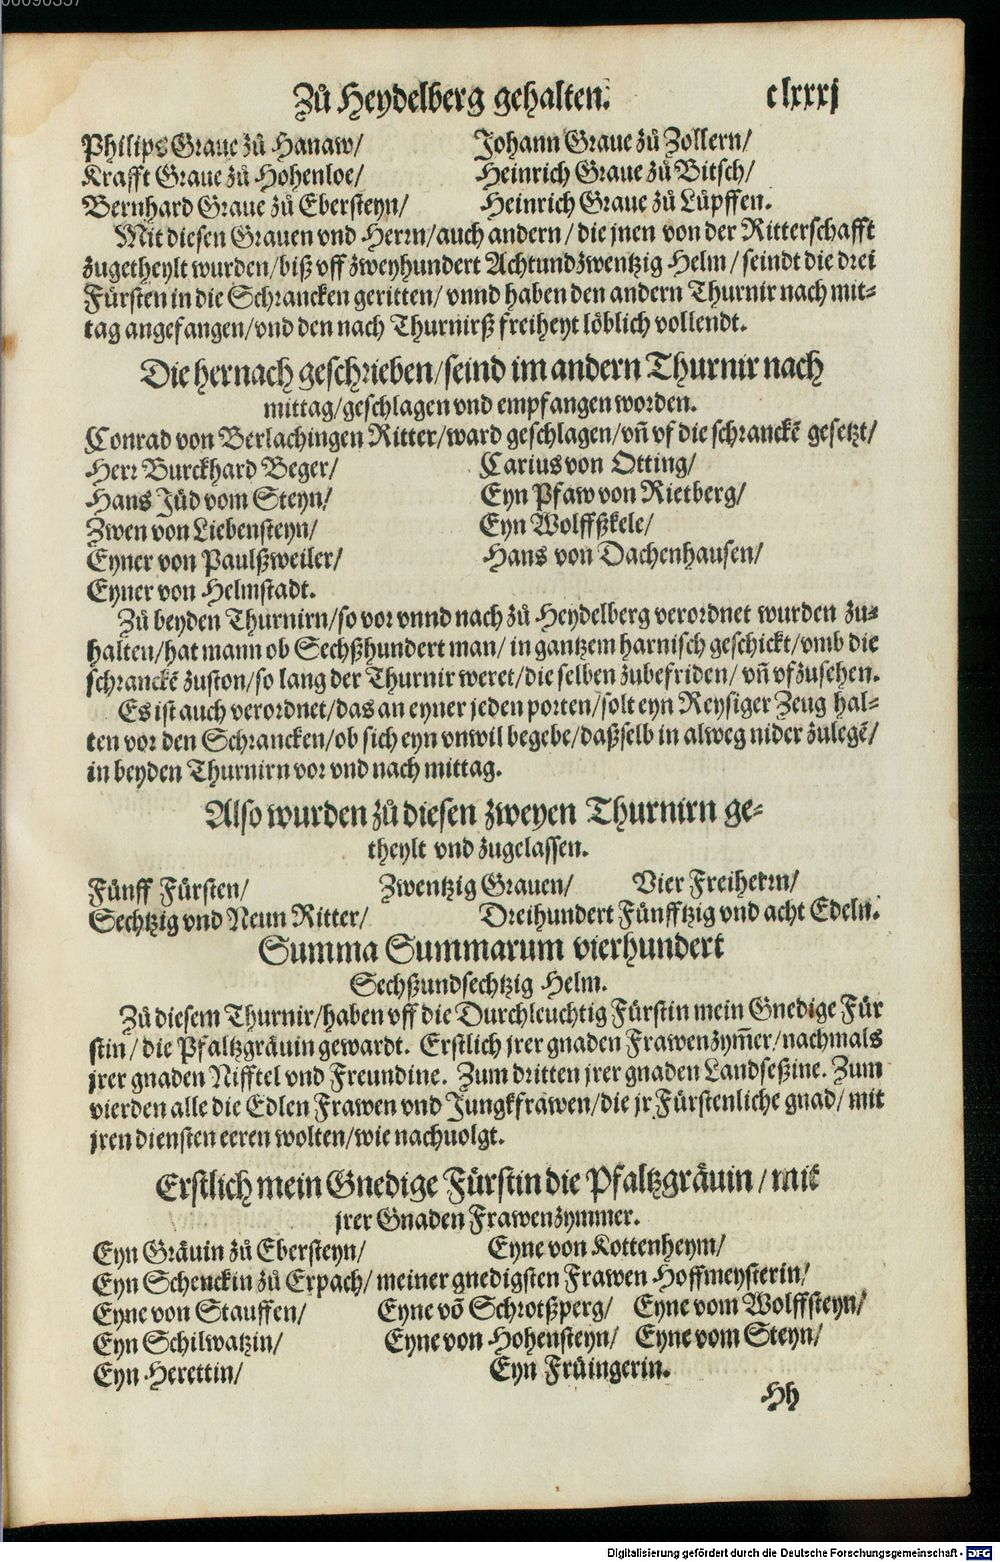 Zů Heydelberg gehalten. clxxxj
Philips Graue zů Hanaw/ Johann Graue zů Zollern/
Krafft Graue zů Hohenloe/ Heinrich Graue zů Bitsch/
Bernhard Graue zů Ebersteyn/ Heinrich Graue zů Lüpffen.
Mit diesen Grauen vnd Herrn/auch andern/die jnen von der Ritterschafft
zugetheylt wurden/biß vff zweyhundert Achtundzwentzig Helm/seindt die drei
Fürsten in die Schrancken geritten/vnnd haben den andern Thurnir nach mit-
tag angefangen/vnd den nach Thurnirß freiheyt löblich vollendt.
Die hernach geschrieben/seind im andern Thurnir nach
mittag/geschlagen vnd empfangen worden.
Conrad von Berlachingen Ritter/ward geschlagen/vñ vf die schranckẽ gesetzt/
Herr Burckhard Beger/ Carius von Otting/
Hans Jüd vom Steyn/ Eyn Pfaw von Rietberg/
Zwen von Liebensteyn/ Eyn Wolffßkele/
Eyner von Paulßweiler/ Hans von Dachenhausen/
Eyner von Helmstadt.
Zů beyden Thurnirn/so vor vnnd nach zů Heydelberg verordnet wurden zu-
halten/hat mann ob Sechßhundert man/in gantzem harnisch geschickt/vmb die
schranckẽ zuston/so lang der Thurnir weret/die selben zubefriden/vñ vfzusehen.
Es ist auch verordnet/das an eyner jeden porten/solt eyn Reysiger Zeug hal-
ten vor den Schrancken/ob sich eyn vnwil begebe/daßselb in alweg nider zulegẽ/
in beyden Thurnirn vor vnd nach mittag.
Also wurden zů diesen zweyen Thurnirn ge-
theylt vnd zugelassen.
Fünff Fürsten/ Zwentzig Grauen/ Vier Freiherrn/
Sechtzig vnd Neun Ritter/ Dreihundert Fünfftzig vnd acht Edeln.
Summa Summarum vierhundert
Sechßundsechtzig Helm.
Zů diesem Thurnir/haben vff die Durchleuchtig Fürstin mein Gnedige Für
stin/die Pfaltzgräuin gewardt. Erstlich jrer gnaden Frawenzym̃er/nachmals
jrer gnaden Nifftel vnd Freundine. Zum dritten jrer gnaden Landseßine. Zum
vierden alle die Edlen Frawen vnd Jungkfrawen/die jr Fürstenliche gnad/mit
jren diensten eeren wolten/wie nachuolgt.
Erstlich mein Gnedige Fürstin die Pfaltzgräuin/mit
jrer Gnaden Frawenzymmer.
Eyn Gräuin zů Ebersteyn/ Eyne von Kottenheym/
Eyn Schenckin zů Erpach/meiner gnedigsten Frawen Hoffmeysterin/
Eyne von Stauffen/ Eyne võ Schrotßperg/ Eyne vom Wolffsteyn/
Eyn Schilwatzin/ Eyne von Hohensteyn/ Eyne vom Steyn/
Eyn Herettin/ Eyn Früingerin.
Hh
Digitalisierung gefördert durch die Deutsche Forschungsgemeinschaft - DFG